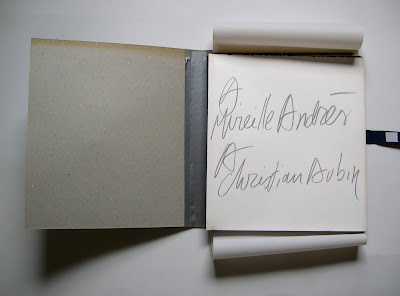 A
Mireille Andrès
A
Christian Aubin